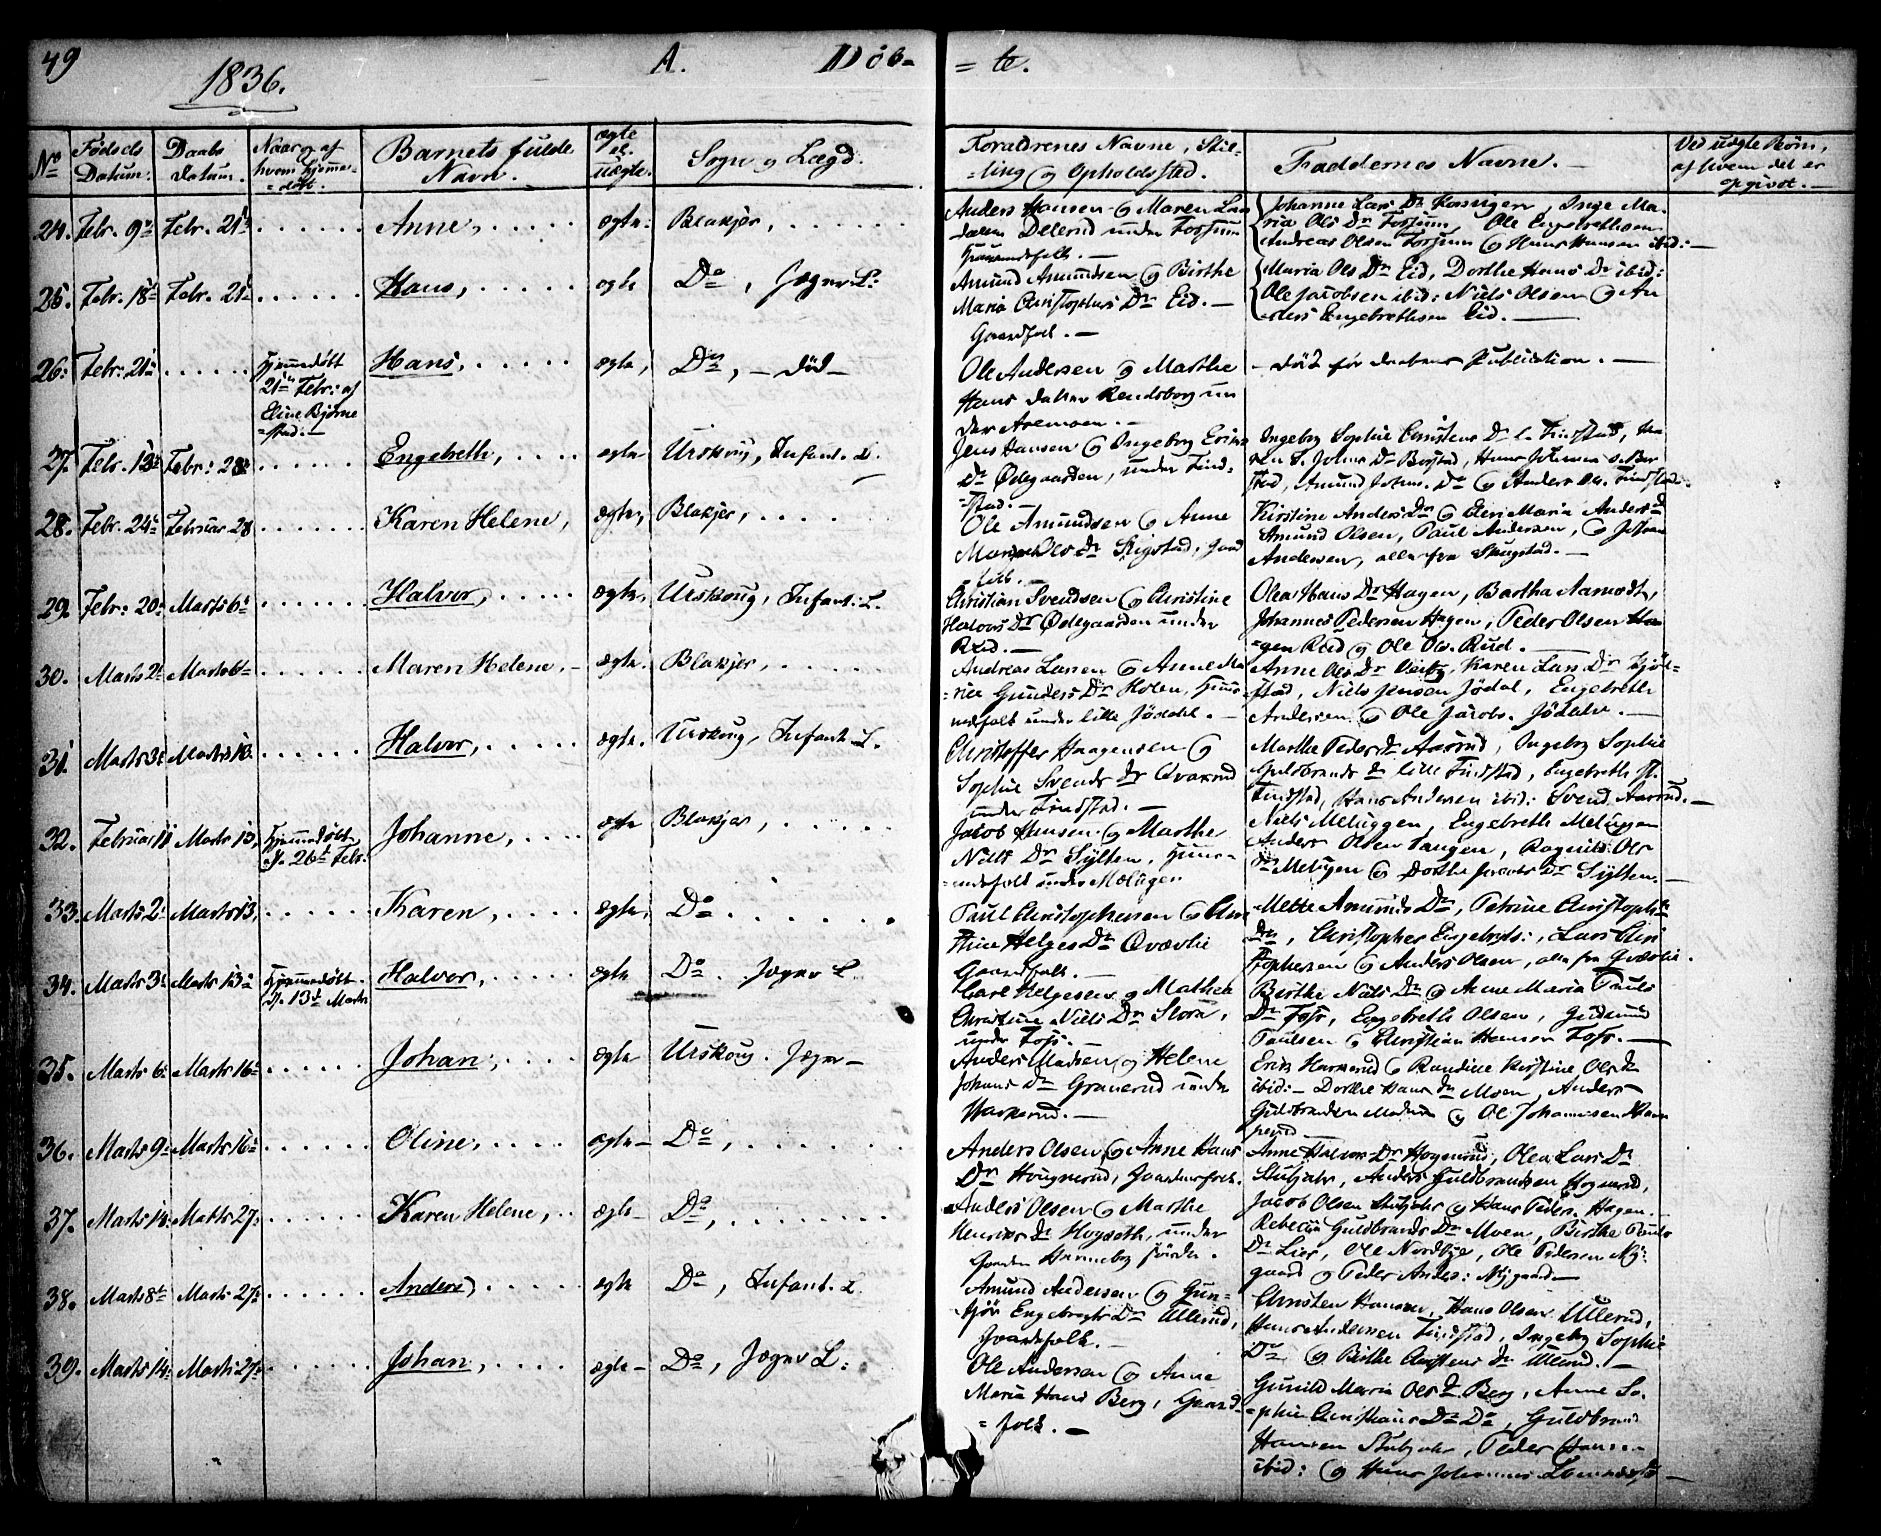 49
1836.
A. Döb-
= te.
No
Födsels Datum.
Daabs Datum.
Naar og af hvem hjemme-döbt.
Barnets fulde Navn.
ægte el. uægte.
Sogn og Lægd.
Forældrenes Navne, Stil-
ling og Opholdssted.
Faddernes Navne. —
Ved uægte Börn,
af hvem det er
opgivet. —
24. Febr. 9de Febr. 21de ...... Anne, ..... ægte. Blakjer, ......
Anders Hansen og Maren Lars
under Fossum
Huusmandsfolk. —
Johanne Lars Dr , Inge Ma-
ria Ols Dr Fossum, Ole Engebrethsen
Andreas Olsen Fossum og Hans Hansen ibid: —
25. Febr. 18de Febr. 21de ...... Hans, ..... ægte Do, Jæger L:
Amund Amundsen og Birthe
Maria Christophers Dr Eid. —
Gaardfolk. —
Maria Ols Dr Eid, Dorthe Hans Dr ibid:
Ole Jacobsen ibid: Niels Olsen og An-
ders Engebrethsen Eid. —
26. Febr. 21de ...... Hjemmedöbt
21de Febr. af
Eline Björne
=stad. —
Hans, ..... ægte, Do, — död —
Ole Andersen og Marthe
Hans datter Rendsborg un
der Aremoen. —
— död för daabens Publication. —
27. Febr. 13de Febr. 28de ...... Engebreth, .... ægte Urskoug, Infant. L.
Jens Hansen og Ingeborg Eriks
Dr Ödegaarden, under Find-
=stad. —
Ingeborg Sophie Christens Dr l. Findstad,
Johns Dr Borstad, Hans Johnsen
Amund Johns. Do og Anders Ols. Findstad.
28. Febr. 24de Februar 28 ...... Karen Helene, ægte, Blakjer, ....
Ole Amundsen og Anne
Maria Ols dr Skugstad, Gaard
folk. —
Kirstine Anders Dr og Eleri Maria Anders dr
Amund Olsen, Paul Andersen, og Johan
Andersen, alle fra Skugstad. —
29. Febr. 20de Marts 6te ...... Halvor, ..... ægte, Urskoug, Infant. L.
Christian Svendsen og Christine
Halvors Dr Ödegaarden under
Rud. —
Olea Hans Dr Hagen, Bertha Aamodt,
Johannes Pedersen Hagen, Peder Olsen Ha-
=gen Rud og Ole Ols. Rud. —
30. Marts 2de Marts 6te ...... Maren Helene. — ægte. Blakjer, .....
Andreas Larsen og Anne Ma
=rie Gunders Dr Holen, Huus-
mandsfolk under lille Jödahl. —
Anne Ols Dr , Karen Lars Dr
=stad, Niels Jensen Jödal, Engebreth
Andersen og Ole Jacobs. Jödahl. —
31. Marts 3de Marts 13. ...... Halvor, ..... ægte. Urskoug, Infant. L.
Christoffer Haagensen og
Sophie Svends dr Qvarud
under Findstad. —
Marthe Peders dr Aarud, Ingeborg Sophie
Guldbrands dr lille Findstad, Engebreth st.
Findstad, Hans Andersen ibid: Svend Aarud. —
32. Februar 11 Marts 13, Hjemmedöbt
26de Febr.
Johanne, .... ægte Blakjer, .....
Jacob Hansen og Marthe
Niels Dr Sylten, Huus-
=mandsfolk under Melugen
Niels Meluggen, Engebreth Meluggen
Anders Olsen Tangen, Ragnild Ols
Dr Melugen og Dorthe Jacobs Dr Sylten. —
33. Marts 2de Marts 13, ...... Karen, ..... ægte, Do ......
Paul Christophersen og Chri
stine Helges Dr Qvævlie
Gaardfolk. —
Mette Amunds Dr, Petrine Christophers
Dr, Christopher Engebrets:, Lars Chri
stophersen og Anders Olsen, alle fra Qvævlie.
34. Marts 3de Marts 13de Hjemmedöbt
13de Marts
Halvor, ..... ægte Do. Jæger L.
Carl Helgesen og Mathea
Christine Niels Dr Slora,
under Foss. —
Birthe Niels Dr og Anne Maria Pauls
Dr Foss, Engebreth Olsen, Gudmund
Paulsen og Christian Hansen Foss. —
35. Marts 6te Marts 16de ...... Johan, ..... ægte Urskoug. Jæger —
Anders Madsen og Helene
Johans dr Gravarud under
Harkerud. —
Erik Harkerud og Randine Kirstine Ols dr
ibid: — Dorthe Hans dr Moen, Anders
Guldbrandsen Moen og Ole Johannesen Har
kerud —
36. Marts 9de Marts 16de ...... Oline, ..... ægte — Do, ......
Anders Olsen og Anne Hans
Dr Hougnerud, Gaardmandsfolk.
Anne Halvors Dr Hognerud, Olea Lars Dr
Stubjahr, Anders Guldbrandsen Hognerud,
Jacob Olsen Stubjahr og Hans Peders. Hagen. —
37. Marts 14 Marts 27de ...... Karen Helene, .. ægte — Do, ......
Anders Olsen og Marthe
Henriks dr Hogseth, under
Gaarden Haneborg
Rebecca Guldbrands Dr Moen, Birthe Pauls
Dr Lier, Ole Nordbye, Ole Pedersen Ny-
gaard og Peder Anders: Nygaard —
38. Marts 8de Marts 27de ...... Anders, ..... ægte Do, Infant. L.
Amund Andersen og Gun-
hjör Engebregts Dr Ullerud,
Gaardfolk. —
Christen Hansen, Hans Olsen Ullerud,
Hans Andersen Findstad, Ingeborg Sophie
Do og Birthe Christens dr Ullerud. —
39. Marts 14de Marts 27de ...... Johan, ..... ægte — Do, Jæger L:
Ole Andersen og Anne
Maria Hans Berg, Gaard-
= folk. —
Gunild Maria Ols dr Berg, Anne So-
=phie Christians Dr Do, Guldbrand
Hansen Stubjahr, Peder Hansen
ibid: og Hans Johannes